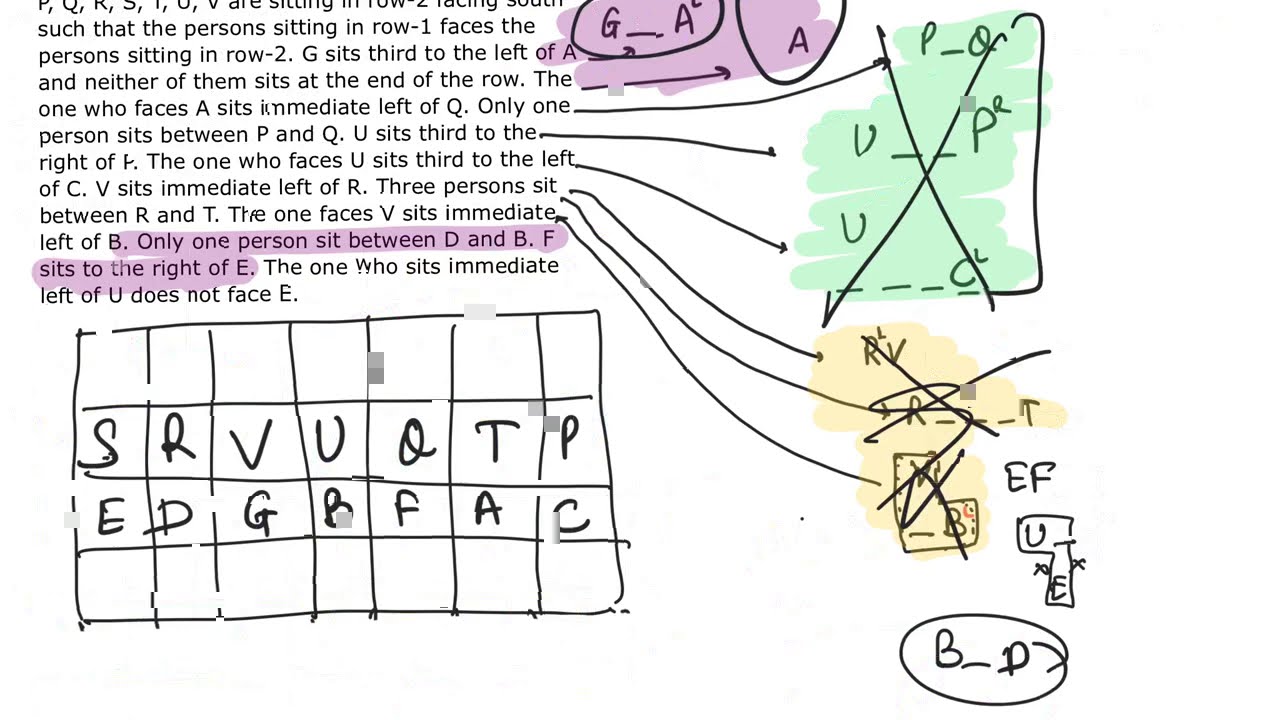 P, Q, R, S, T, U, V are sitting in row-2 facing south
such that the persons sitting in row-1 faces the
persons sitting in row-2. G sits third to the left of A
and neither of them sits at the end of the row. The
one who faces A sits immediate left of Q. Only one
person sits between P and Q. U sits third to the
right of P. The one who faces U sits third to the left
of C. V sits immediate left of R. Three persons sit
between R and T. The one faces V sits immediate
left of B. Only one person sit between D and B. F
sits to the right of E. The one Who sits immediate
left of U does not face E.
G _ _ A L
A
P _ Q
U _ _ P R
U
_ _ _ C L
R L V
R _ _ _ T
V
_ B L
S R V U Q T P
E D G B F A C
EF
U _
x E x
B _ D